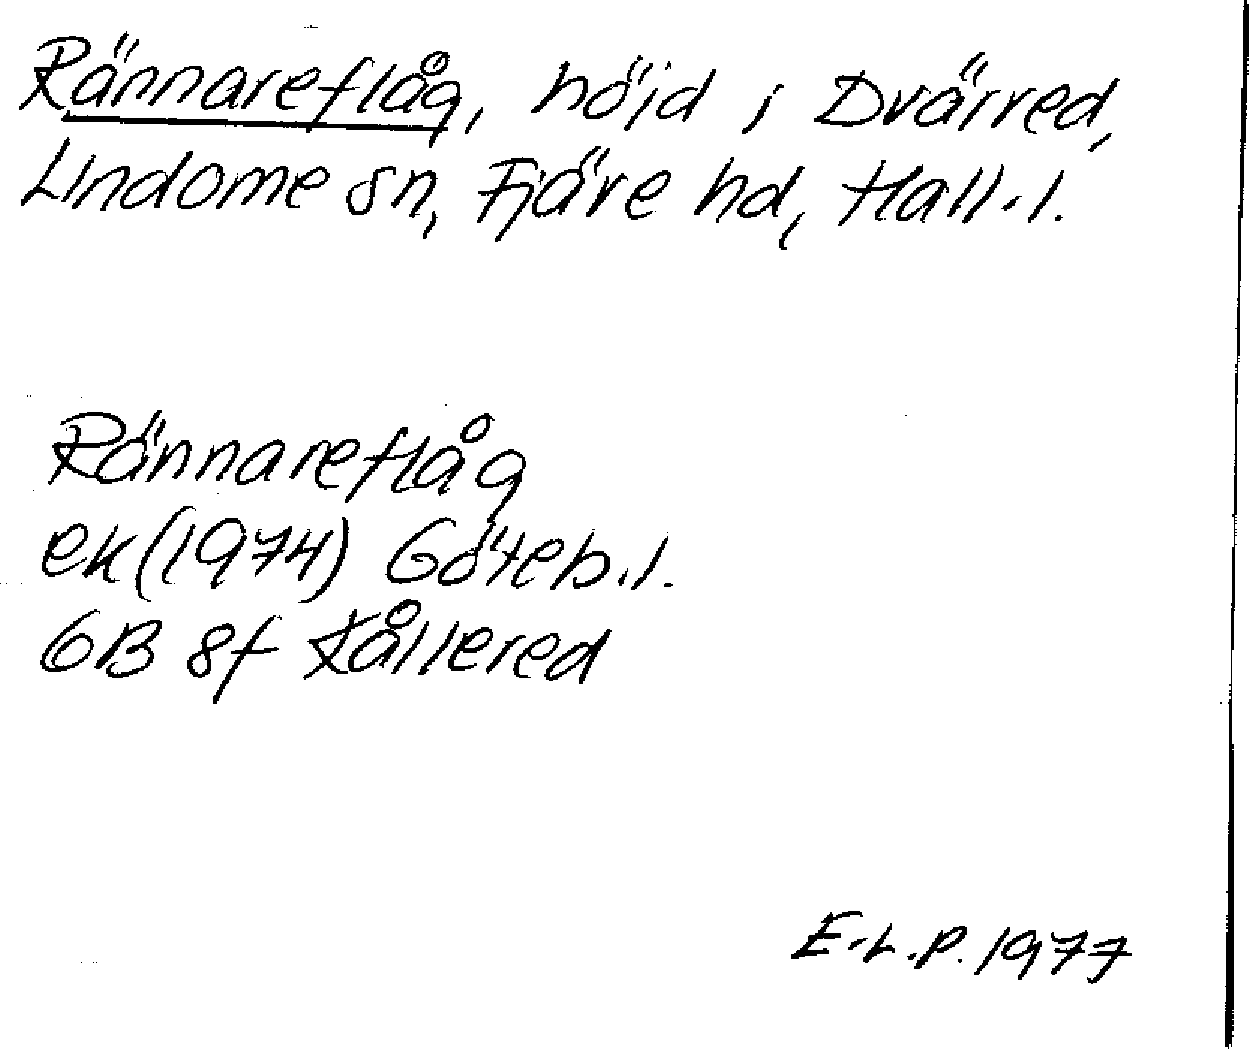 Rännareflåg, höjd i Dvärred,
Lindome sn, Fjäre hd, Hall.l.
Rännareflåg
ek (1974) Göteb.l.
6B 8f Kållered
E.L.P. 1977